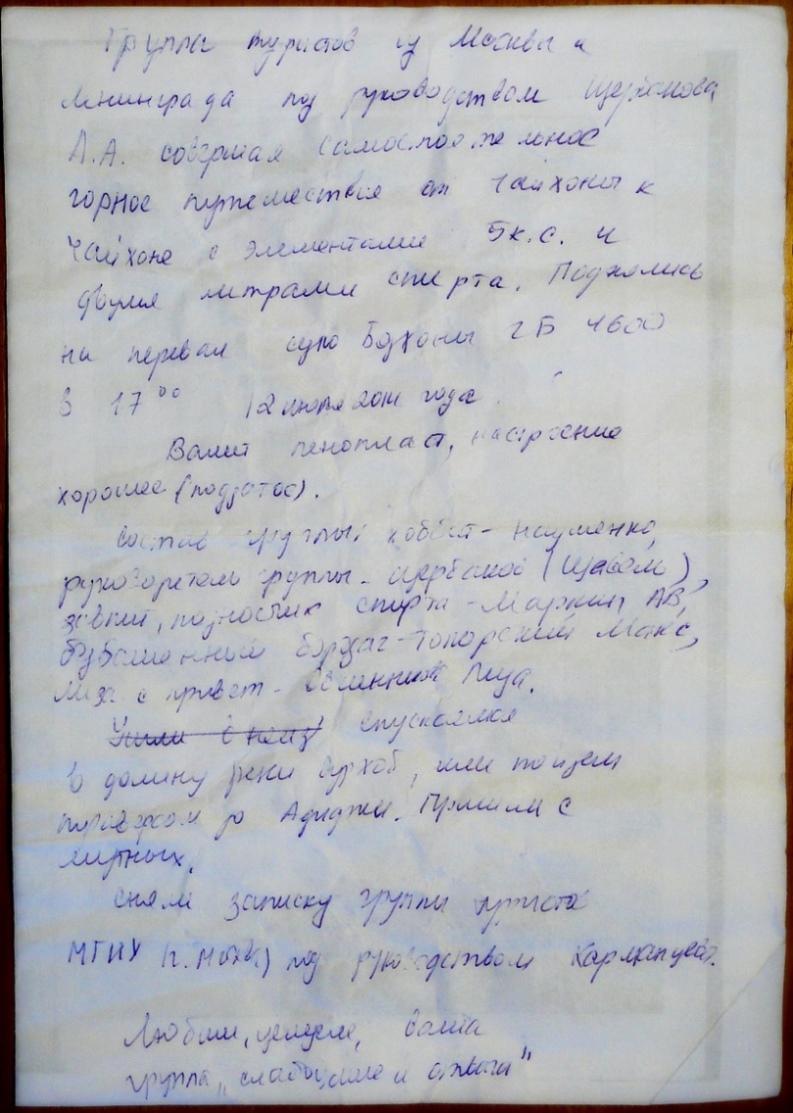 Группа туристов из Москвы и
Ленинграда под руководством Щербакова
А.А. совершая самостоятельное
горное путешествие от чайхоны к
чайхоне с элементами 5 к.с. и
двумя литрами спирта. Поднялись
на перевал 2Б 4600
в 17⁰⁰ 12 2011 года.
Валит пенопласт, настроение
хорошее (поддатое).
Состав группы: - Науменко,
руководитель группы - Щербаков (Щавель),
завпит, подносчик спирта - Маркин АВ,
- Топорский Макс,
привет -
Ушли с ней спускаемся
в долину реки Сурхоб, или пойдем
траверсом до Пришли с
Сняли записку группы туристов
МГИУ (г. Москва) под руководством
Любим, целуем, ваша
группа „слабоумие и отвага"